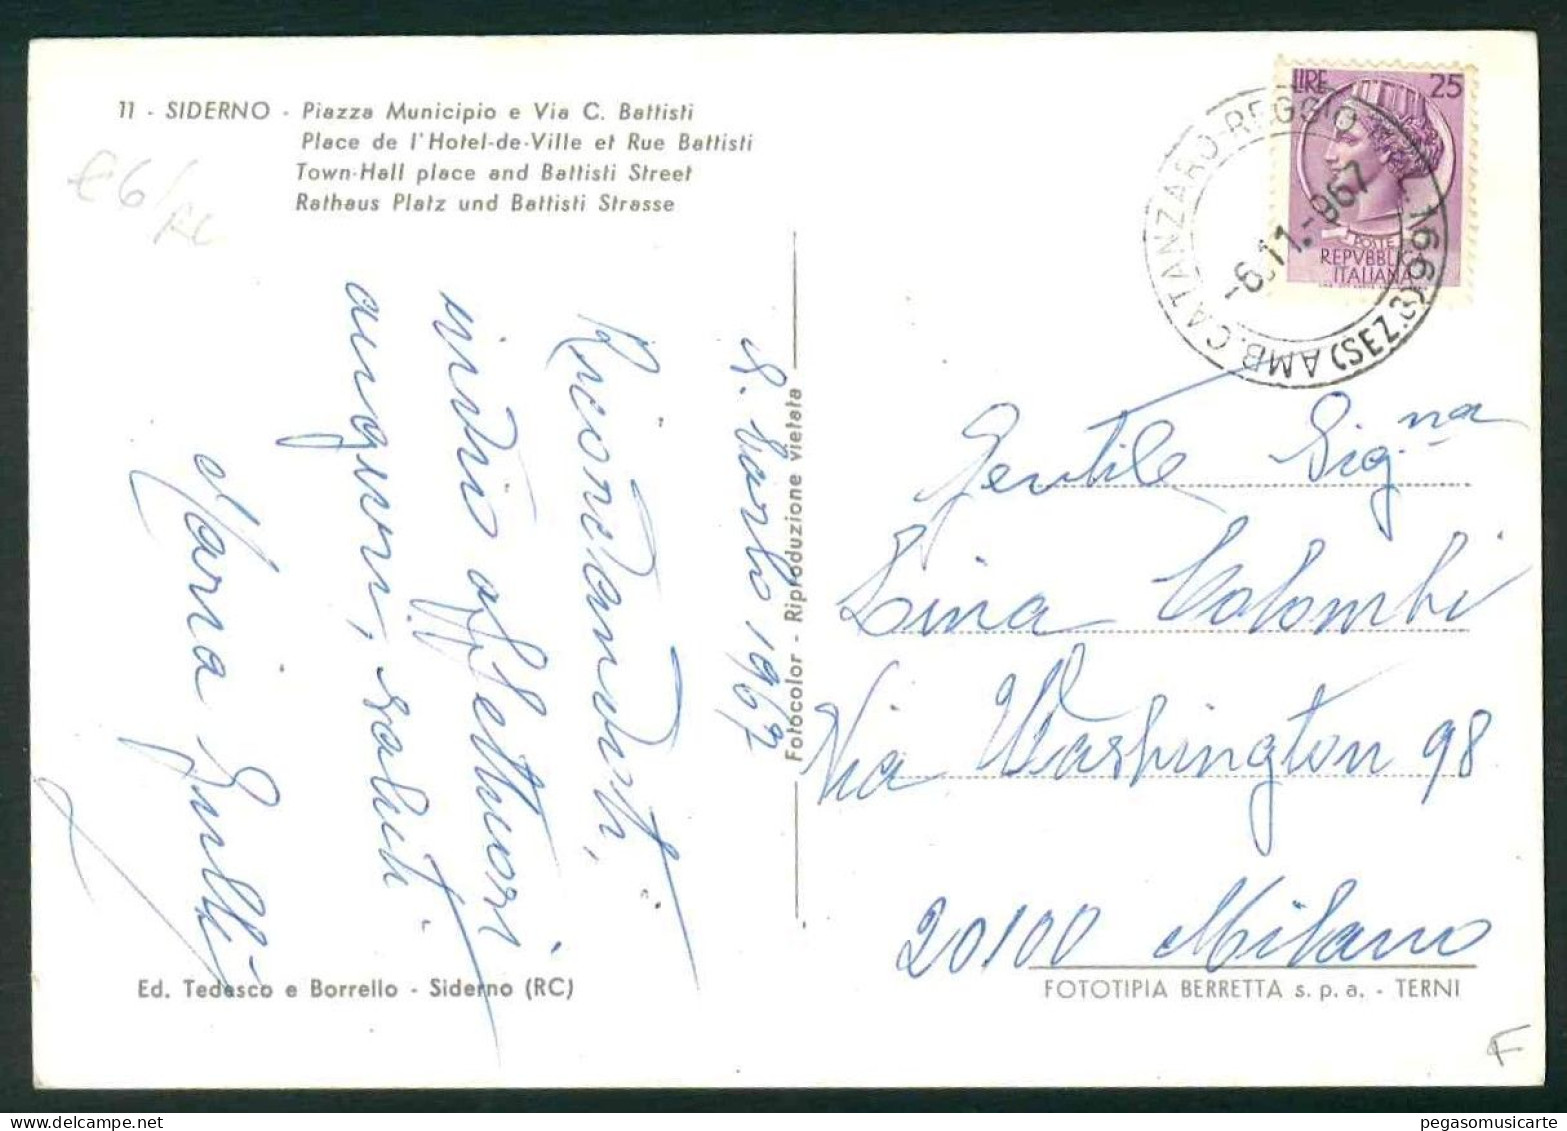 11 - SIDERNO - Piazza Municipio e Via C. Battisti
Place de l'Hotel-de-Ville et Rue Battisti
Town-Hall place and Battisti Street
Rathaus Platz und Battisti Strasse
€6/RC
LIRE 25
POSTE
REPVBBLICA
ITALIANA
AMB. CATANZARO-REGGIO C. 166 (SEZ.3)
-6.11.967
S. Carlo 1967
Ricordandoti,
invio affettuosi
auguri, saluti
Maria
Fotocolor - Riproduzione vietata
Gentile Sig.na
Lina Colombi
Via Washington 98
20100 Milano
Ed. Tedesco e Borrello - Siderno (RC)
FOTOTIPIA BERRETTA s.p.a. - TERNI
F
pegasomusicarte